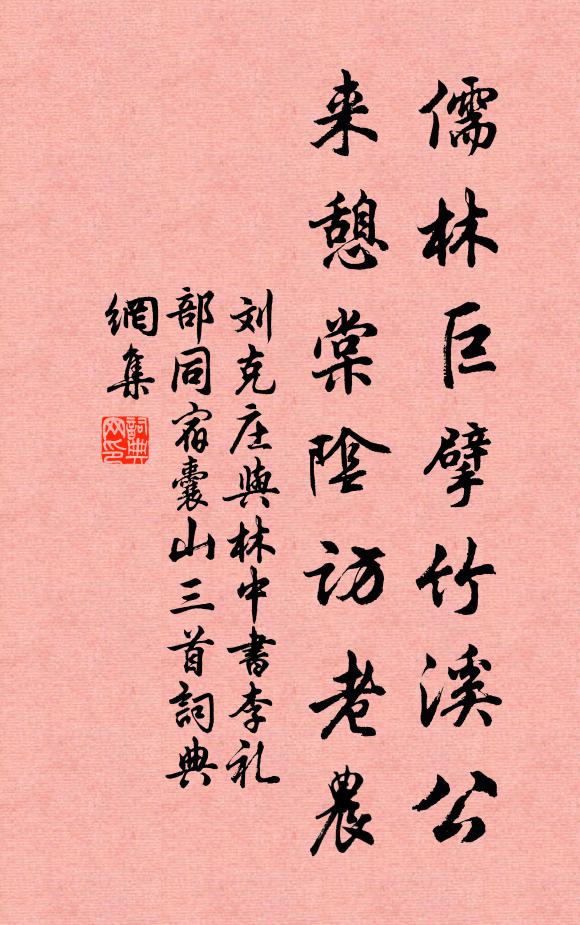 儒林巨擘竹溪公
来憩棠陰访老農
刘克庄與林中書李礼
部同宿囊山三首詞典
網集
詞典
网印